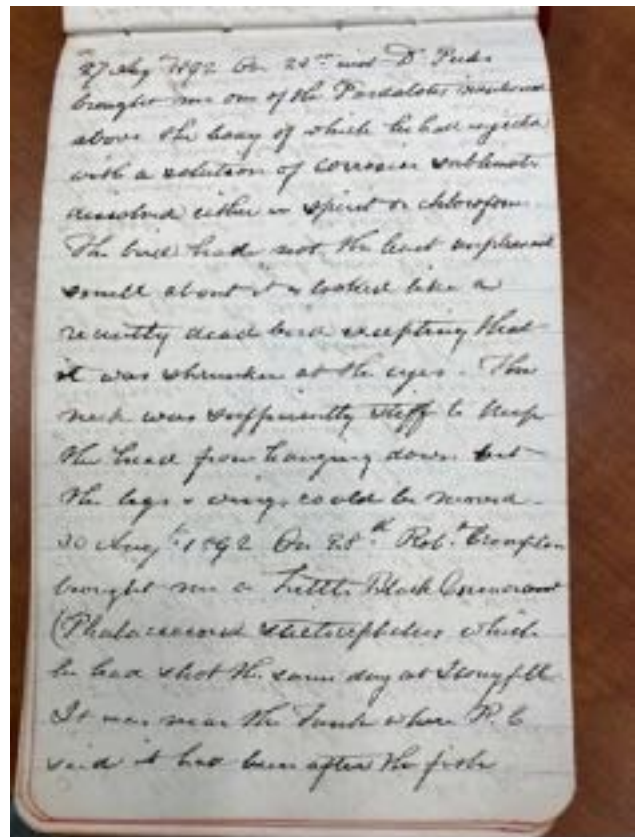 27 Aug 1892 On 23rd inst Dr
brought me one of the Pardalotes mentioned
above the body of which he had injected
with a solution of corrosive sublimate
dissolved either in spirit or chloroform
The bird had not the least unpleasant
smell about it & looked like a
recently dead bird excepting that
it was shrunken at the eyes. The
neck was sufficiently stiff to keep
the head from hanging down but
the legs & wings could be moved
30 Augt 1892 On 28th Robt Crompton
brought me a Little Black Cormorant
(Phalacrocorax stictocephalus which
he had shot the same day at Stonyfell
It was near the Tank where R. C
said it had been after the fish